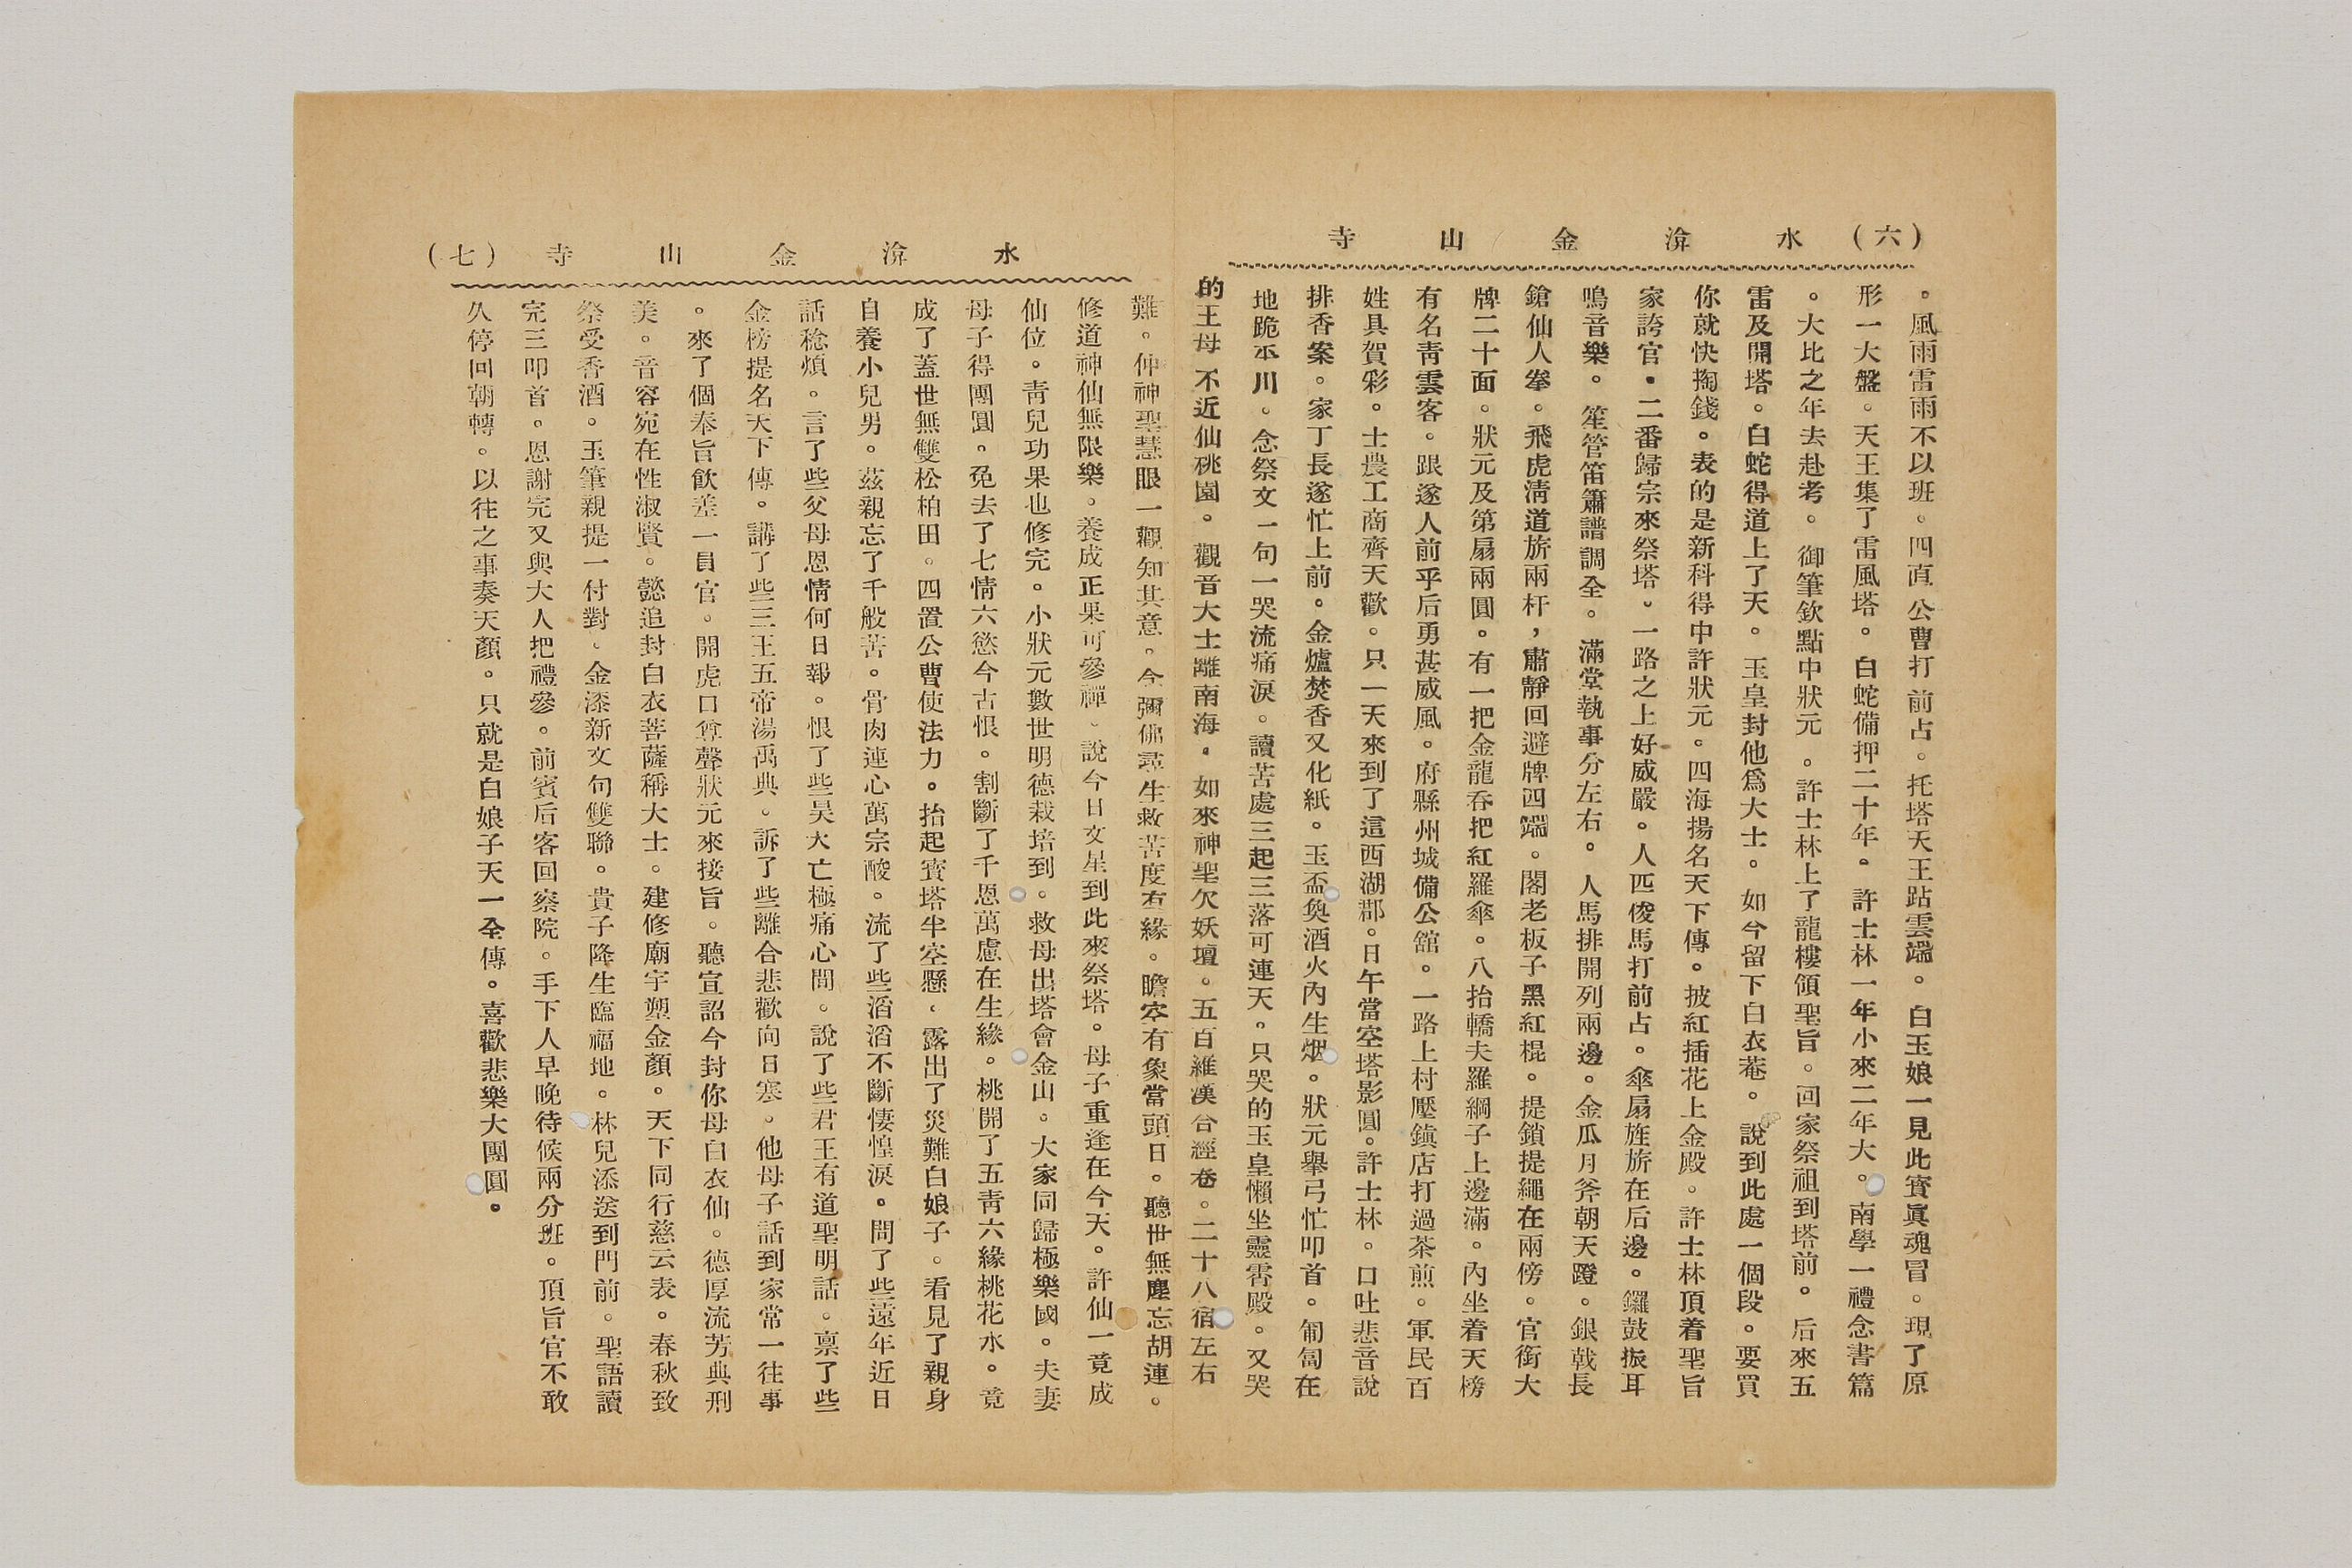 （六）　水淹金山寺
。風雨雷雨不以班。四直公曹打前占。托塔天王跕雲端。白玉娘一見此寳眞魂冒。現了原
形一大盤。天王集了雷風塔。白蛇備押二十年。許士林一年小來二年大。南學一禮念書篇
。大比之年去赴考。御筆欽點中狀元。許士林上了龍樓領聖旨。回家祭祖到塔前。后來五
雷及開塔。白蛇得道上了天。玉皇封他爲大士。如今留下白衣菴。說到此處一個段。要買
你就快掏錢。表的是新科得中許狀元。四海揚名天下傳。披紅插花上金殿。許士林頂着聖旨
家誇官。二番歸宗來祭塔。一路之上好威嚴。人匹俊馬打前占。傘扇旌旂在后邊。鑼鼓振耳
鳴音樂。笙管笛簫譜調全。滿堂執事分左右。人馬排開列兩邊。金瓜月斧朝天蹬。銀戟長
鎗仙人拳。飛虎淸道旂兩杆，肅靜回避牌四端。閣老板子黑紅棍。提鎖提繩在兩傍。官銜大
牌二十面。狀元及第扇兩圓。有一把金龍吞把紅羅傘。八抬轎夫羅綱子上邊滿。內坐着天榜
有名靑雲客。跟遂人前乎后勇甚威風。府縣州城備公舘。一路上村壓鎮店打過茶煎。軍民百
姓具賀彩。士農工商齊天歡。只一天來到了這西湖郡。日午當空塔影圓。許士林。口吐悲音說
排香案。家丁長遂忙上前。金爐焚香又化紙。玉盃奐酒火內生烟。狀元舉弓忙叩首。匍匐在
地跪不川。念祭文一句一哭流痛淚。讀苦處三起三落可連天。只哭的玉皇懶坐靈霄殿。又哭
的王母不近仙桃園。觀音大士離南海。如來神聖欠妖壇。五百維漢合經卷。二十八宿左右
（七）　水淹金山寺
難。仲神聖慧眼一觀知其意。今彌佛尋生救苦度有緣。瞻空有象當頭日。聽世無塵忘胡連。
修道神仙無限樂。養成正果可參禪。說今日文星到此來祭塔。母子重逢在今天。許仙一竟成
仙位。靑兒功果也修完。小狀元數世明德栽培到。救母出塔會金山。大家同歸極樂國。夫妻
母子得團圓。免去了七情六慾今古恨。割斷了千恩萬慮在生緣。桃開了五靑六緣桃花水。竟
成了蓋世無雙松柏田。四置公曹使法力。抬起寳塔半空懸。露出了災難白娘子。看見了親身
自養小兒男。茲親忘了千般苦。骨肉連心萬宗酸。流了些滔滔不斷悽惶淚。問了些遠年近日
話稔煩。言了些父母恩情何日報。恨了些昊大亡極痛心間。說了些君王有道聖明話。禀了些
金榜提名天下傳。講了些三王五帝湯禹典。訴了些離合悲歡向日寒。他母子話到家常一往事
。來了個奉旨飮差一員官。開虎口尊聲狀元來接旨。聽宣詔今封你母白衣仙。德厚流芳典刑
美。音容宛在性淑賢。懿追封白衣菩薩稱大士。建修廟宇塑金顏。天下同行慈云表。春秋致
祭受香酒。玉筆親提一付對。金漆新文句雙聯。貴子降生臨福地。林兒添送到門前。聖語讀
完三叩首。恩謝完又與大人把禮參。前賓后客回察院。手下人早晚待候兩分班。頂旨官不敢
久停回朝轉。以往之事奏天顏。只就是白娘子天一全傳。喜歡悲樂大團圓。